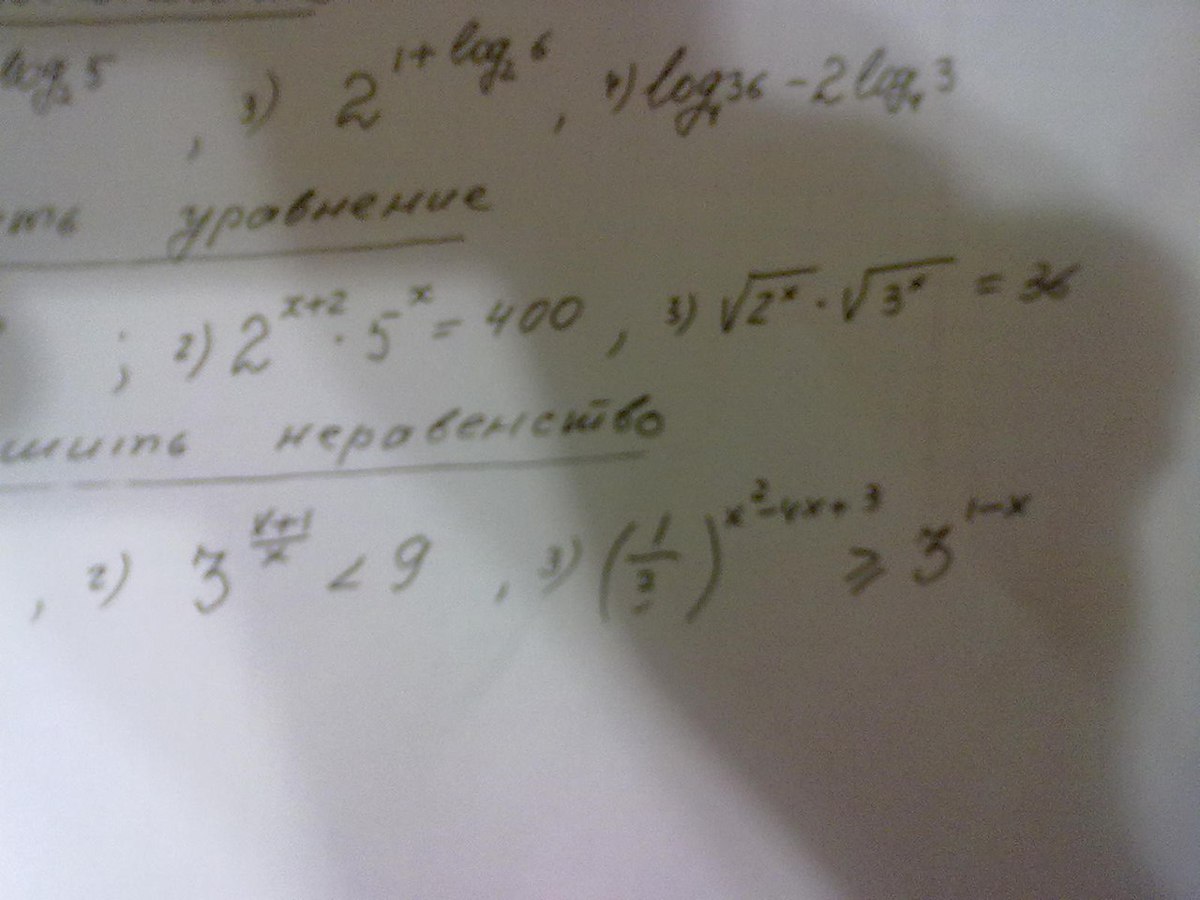 log₂5 , 3) 2^(1+log₂6) , 4) log₄36 - 2log₄3
уравнение
; 2) 2^(x+2) · 5^x = 400 , 3) √(2^x) · √(3^x) = 36
шить неравенство
, 2) 3^((x+1)/x) < 9 , 3) (1/3)^(x²-4x+3) ⩾ 3^(1-x)